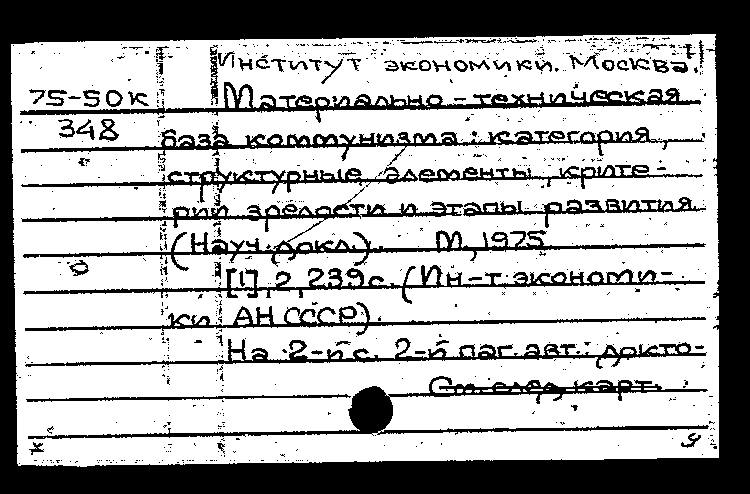 Институт экономики. Москва.
75-50к Материально-техническая
348 база коммунизма: категория,
структурные элементы, крите-
рии зрелости и этапы развития.
(Науч. докл.). М., 1975
[1], 2, 239 с. (Ин-т экономи-
ки АН СССР).
На 2-й с. 2-й паг. авт.: докто-
См. след. карт.
к